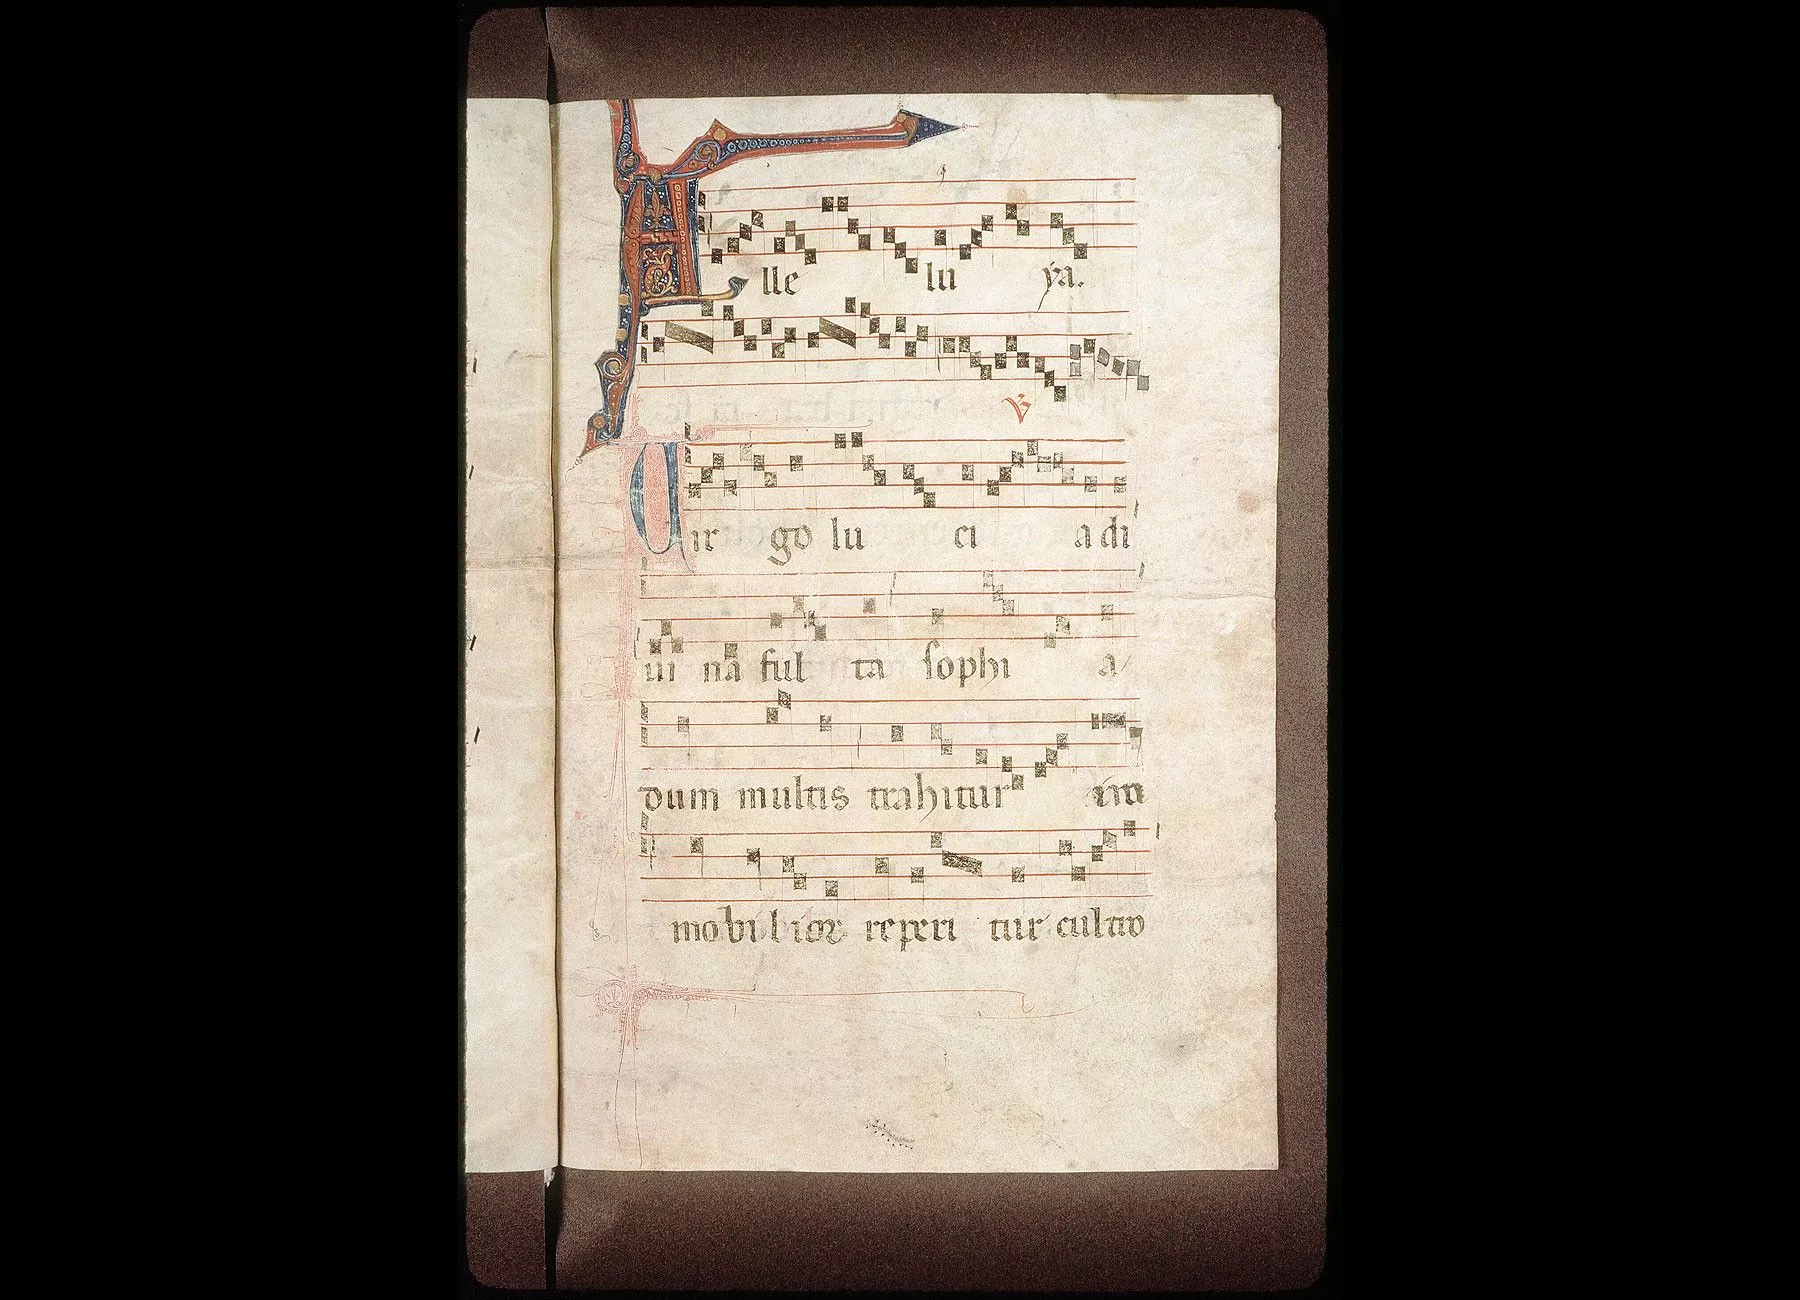 Alle lu ya.
℣
Uir go lu ci a di
ui na ful ta sophi a
dum multis trahitur
mobilior reperi tur cultro